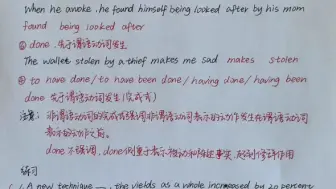 When he awoke, he found himself being looked after by his mom
found being looked after
② done. 先于谓语动词发生
The wallet stolen by a thief makes me sad makes stolen
③ to have done / to have been done / having done / having been
done 先于谓语动词发生(完成式)
注意: 非谓语动词的完成式强调非谓语动词表示的动作发生在谓语动词
表示的动作之前。
done 不强调, done侧重于表示被动和陈述事实, 起到修饰作用
练习
A new technique __, the yields as a whole increased by 20 percent